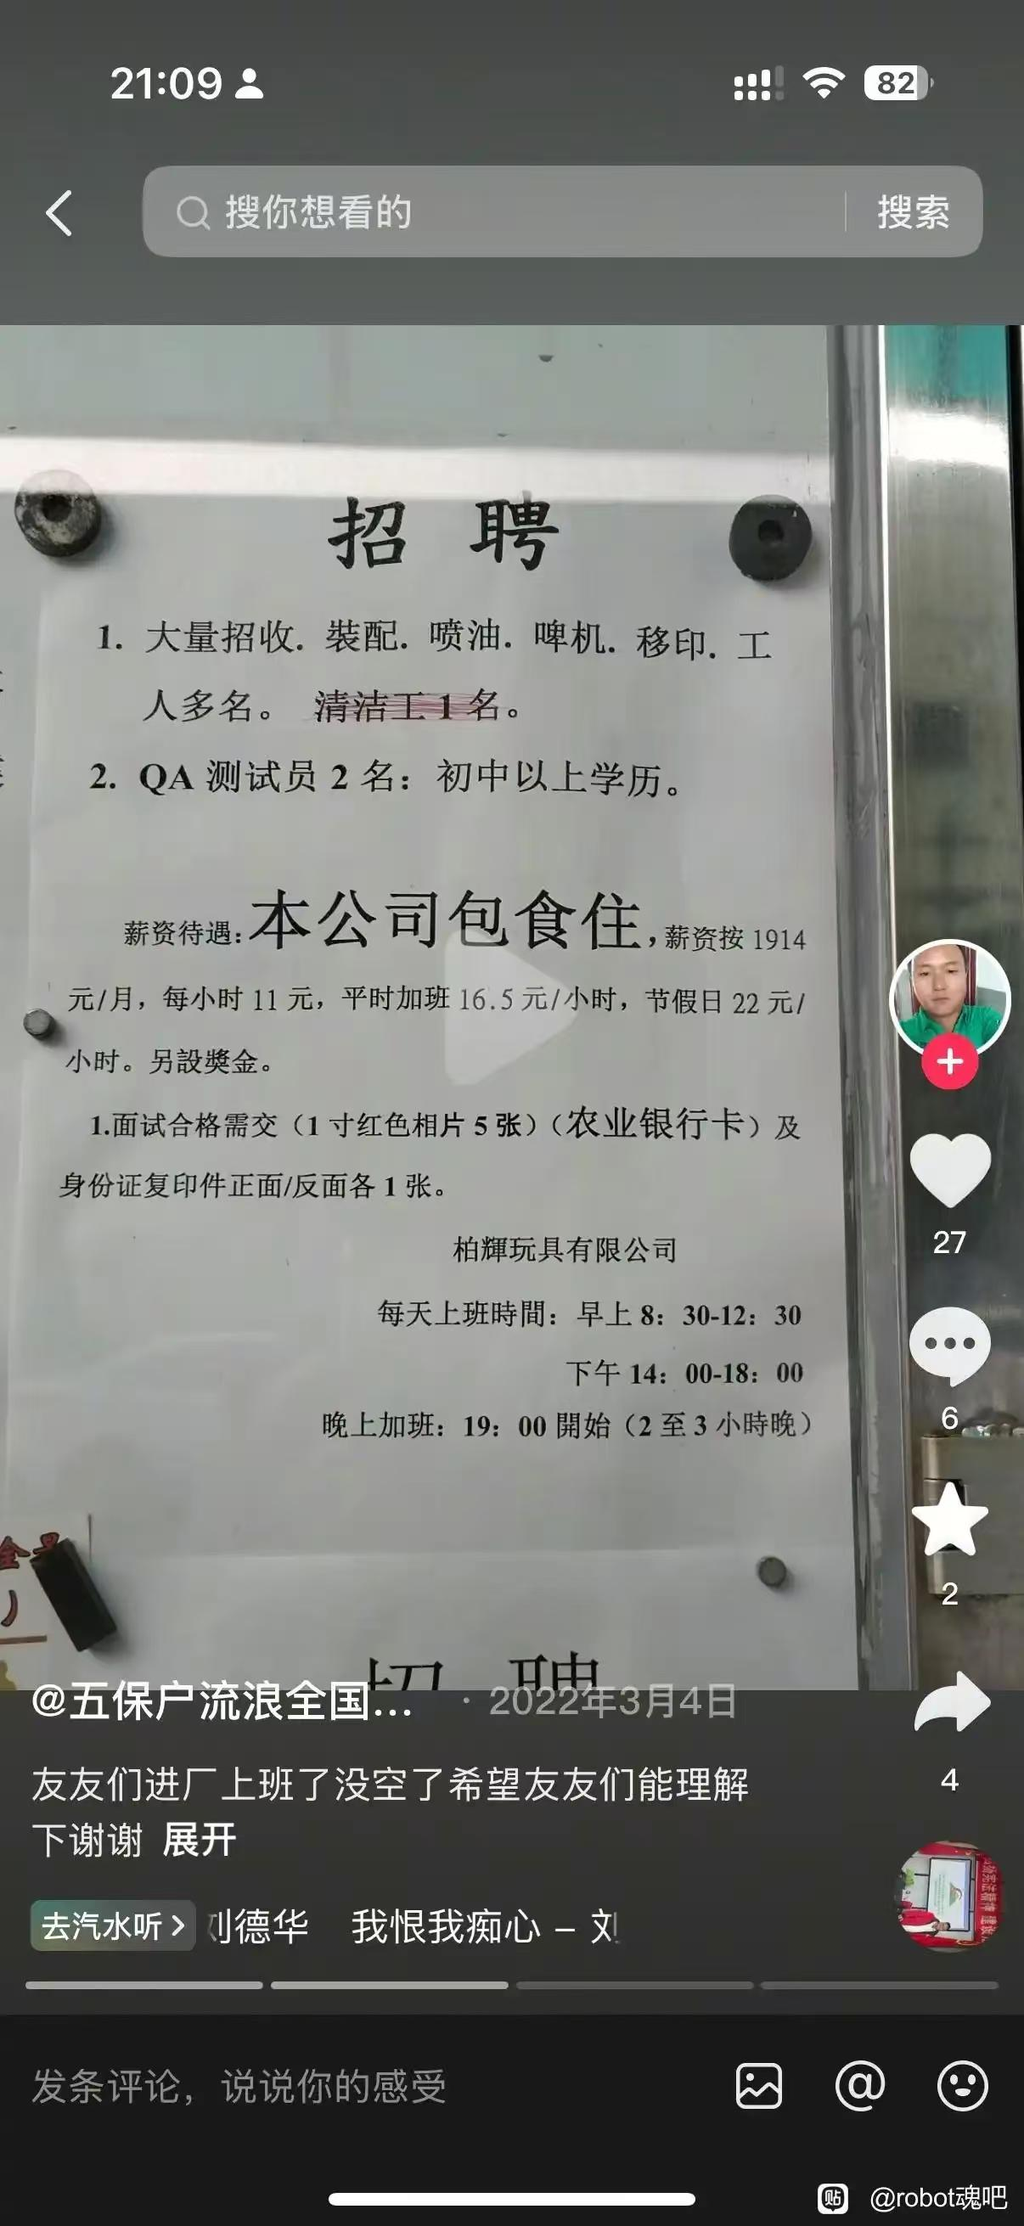 21:09
82
搜你想看的
搜索
招 聘
1. 大量招收. 裝配. 喷油. 啤机. 移印. 工
人多名。 清洁工 1 名。
2. QA 测试员 2 名：初中以上学历。
薪资待遇:本公司包食住,薪资按 1914
元/月，每小时 11 元，平时加班 16.5 元/小时，节假日 22 元/
小时。另設獎金。
1.面试合格需交（1 寸红色相片 5 张）（农业银行卡）及
身份证复印件正面/反面各 1 张。
柏輝玩具有限公司
每天上班時間：早上 8：30-12：30
下午 14：00-18：00
晚上加班：19：00 開始（2 至 3 小時晚）
招 聘
27
6
2
4
@五保户流浪全国... · 2022年3月4日
友友们进厂上班了没空了希望友友们能理解
下谢谢 展开
去汽水听 刘德华 我恨我痴心 – 刘
发条评论，说说你的感受
贴 @robot魂吧